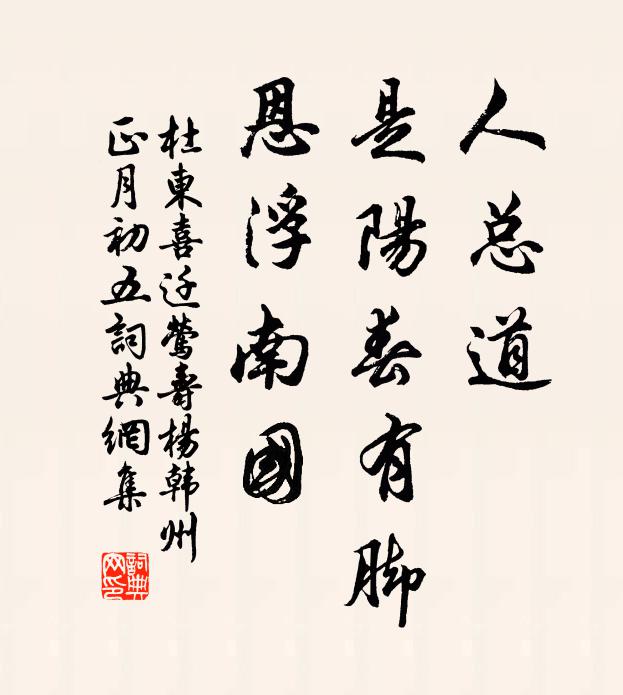 人总道
是陽春有脚
恩浮南國
杜東喜迁鶯壽楊韩州
正月初五詞典網集
詞典
网印